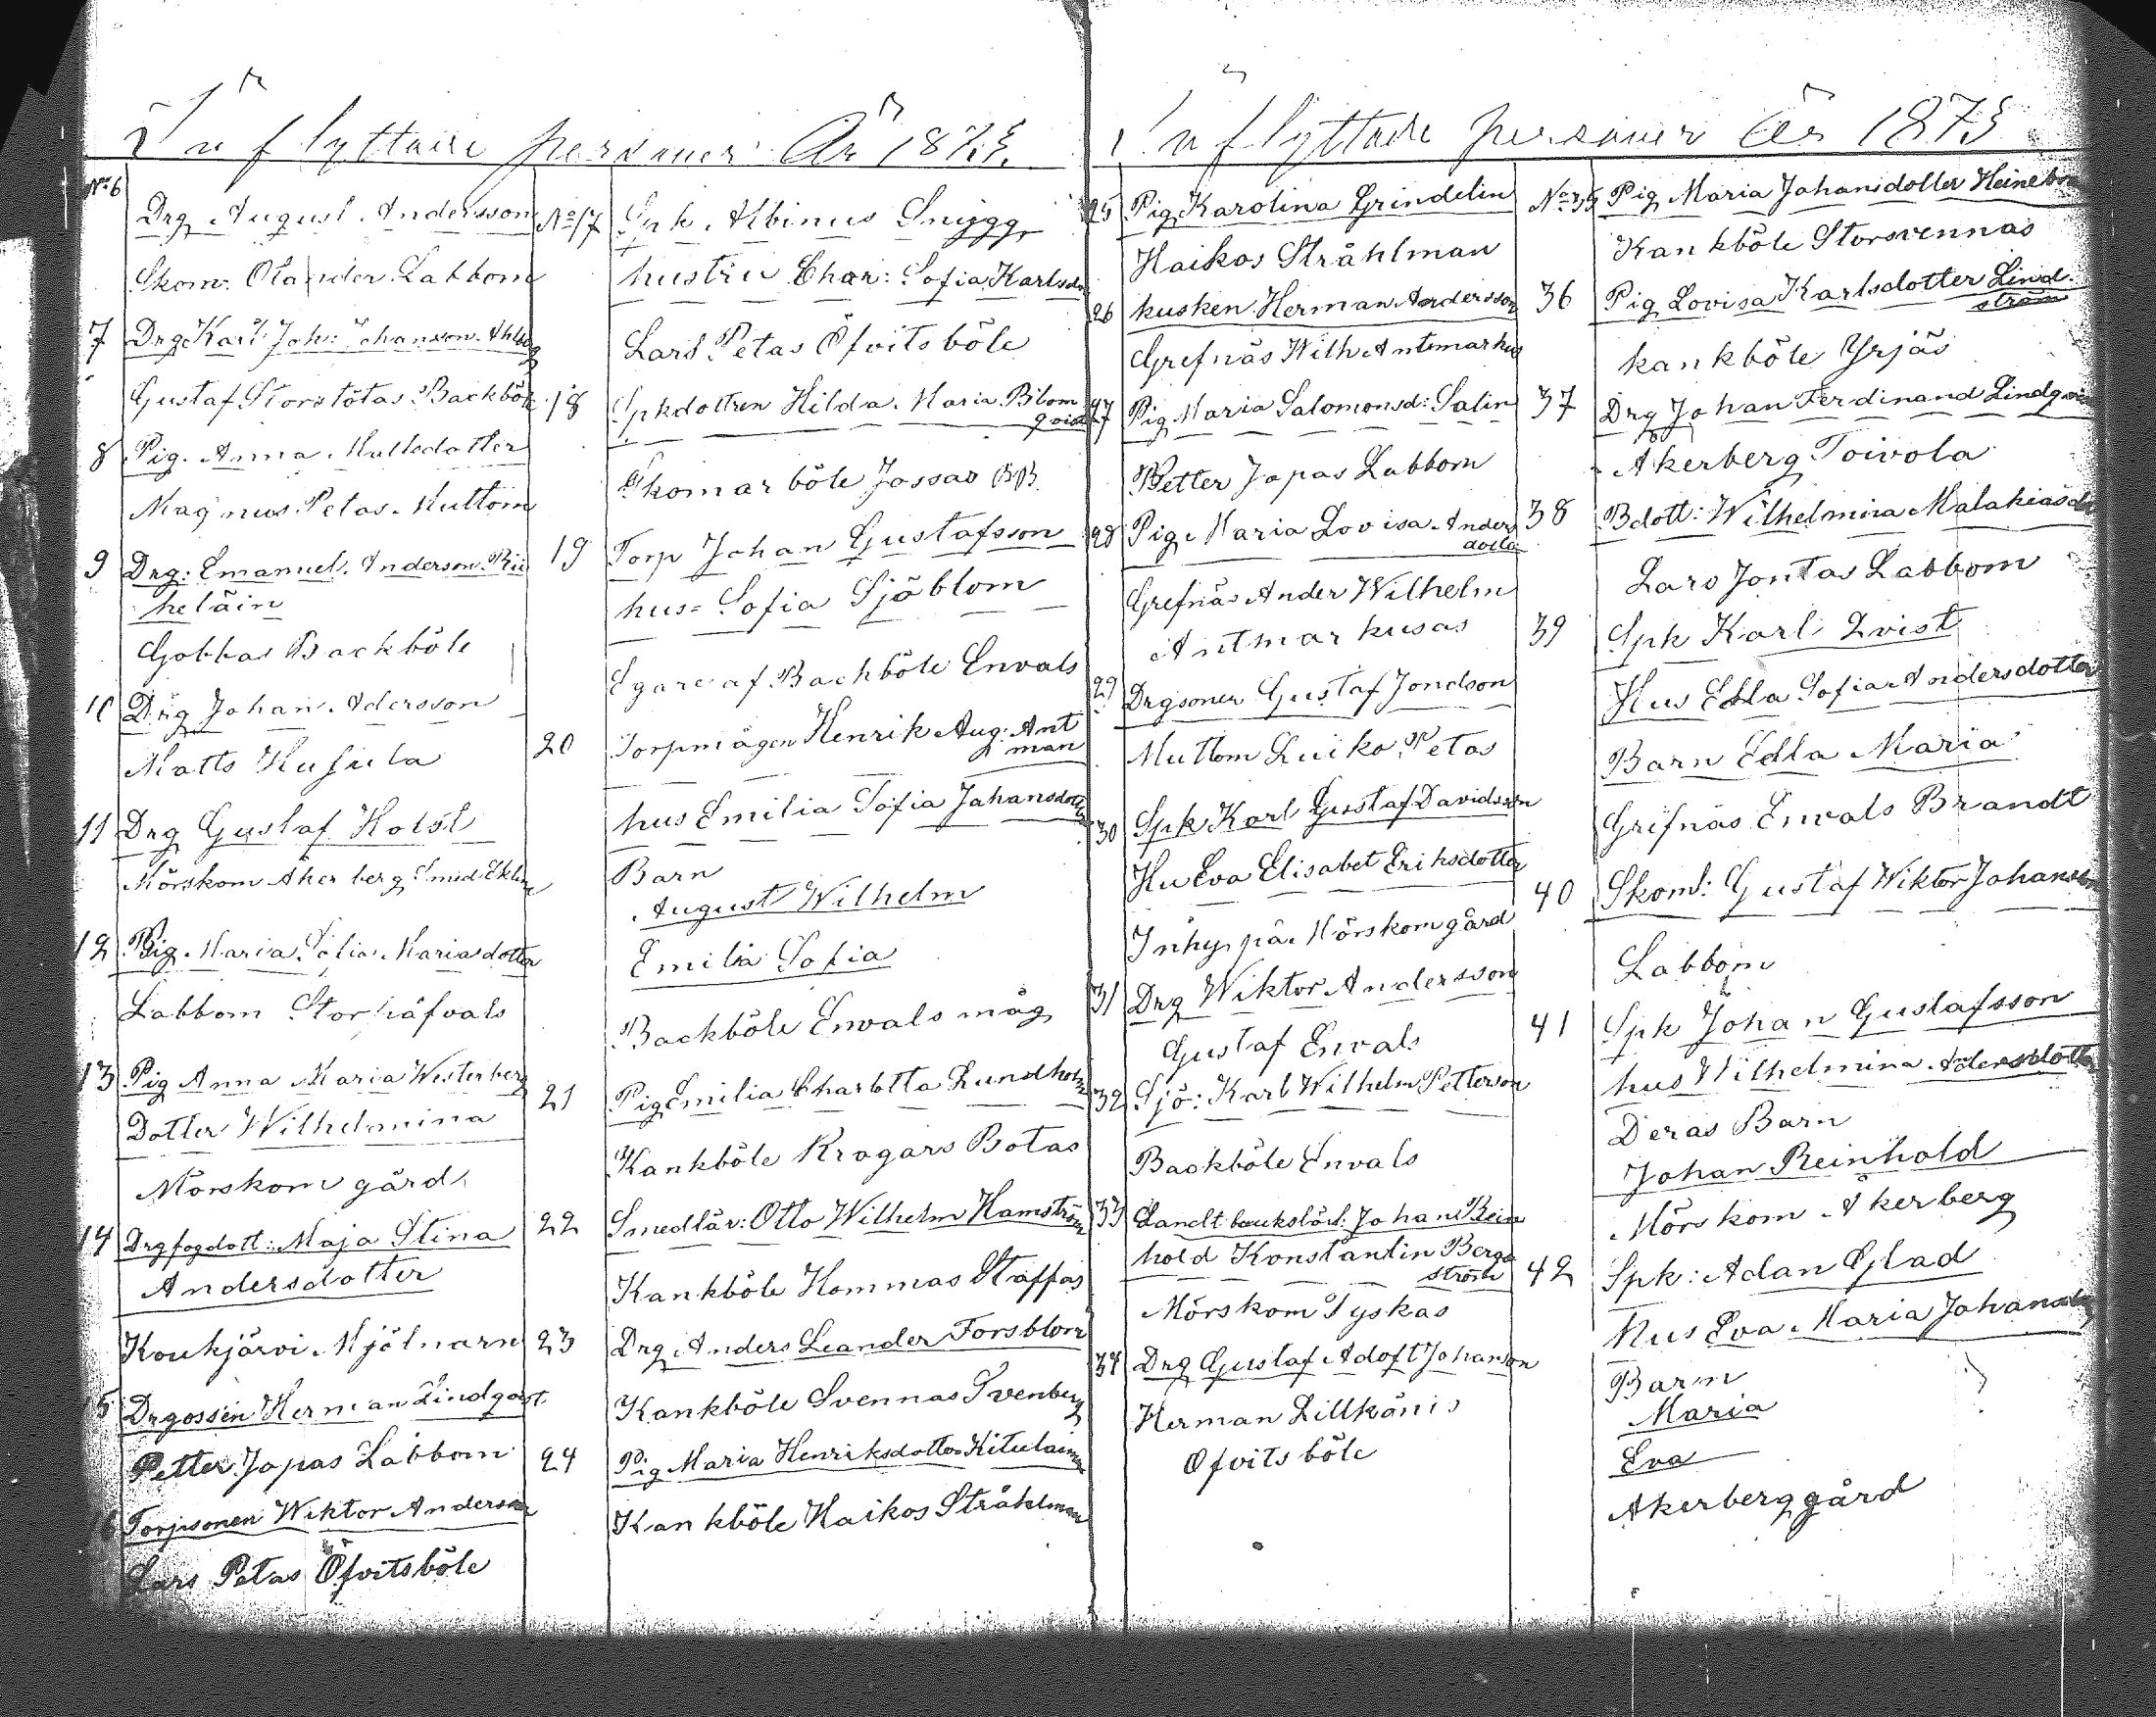 Inflyttade personer År 1873.
No 6 Drg August Andersson
Skom: Olander Labbom
7 Drg Karl Joh: Johansson Ahlberg
Gustaf Storstötas Backböle
8 Pig. Anna Mattsdotter
Magnus Petas Muttom
9 Drg: Emanuel Anderson Rii
heläin
Gobbas Backböle
10 Drg Johan Adersson
Matts Husula
11 Drg Gustaf Holst
Mörskom Åkerberg Smed Eklun
12 Pig Maria Sofia Mariasdotter
Labbom Storhäfvals
13 Pig Anna Maria Westerberg
Dotter Wilhelmina
Mörskom gård
14 Drgfogdott: Maja Stina
Andersdotter
Koukjärvi Mjölnarn
15 Drgossen Herman Lindqvst
Petter Japas Labbom
16 Torpsonen Wiktor Anderson
Lars Petas Öfvitsböle
No 17 Spk. Albinus Snygg
hustru Char: Sofia Karlsdr
Lars Petas Öfvitsböle
18 Spkdottren Hilda Maria Blom
qvist
Skomarböle Jossas BB
19 Torp Johan Gustafsson
hus= Sofia Sjöblom
Egare af Backböle Envals
20 Torpmågen Henrik Aug: Ant
man
hus Emilia Sofia Johansdotter
Barn
August Wilhelm
Emilia Sofia
Backböle Envals måg
21 Pig Emilia Charlotta Lundholm
Kankböle Krogars Botas
22 Smedlär: Otto Wilhelm Hamström
Kankböle Hommas Staffas
23 Drg Anders Leander Forsblom
Kankböle Svennas Svenberg
24 Pig Maria Henriksdotter Kitulainen
Kankböle Haikos Stråhlman
Inflyttade personer År 1873
25 Pig Karolina Grindelin
Haikos Stråhlman
26 kusken Herman Andersson
Grefnäs Wilh Antmarkus
27 Pig Maria Salomonsd: Salin
Petter Japas Labbom
28 Pig Maria Lovisa Anders
dotter
Grefnäs Ander Wilhelm
Antmarkusas
29 Drgsonen Gustaf Jondson
Muttom Luiko Petas
30 Spk Karl Gustaf Davidsson
Hu Eva Elisabet Eriksdotter
Inhys på Mörskom gård
31 Drg Wiktor Andersson
Gustaf Envals
32 Sjö: Karl Wilhelm Petterson
Backböle Envals
33 Landtbrukslärl: Johan Rein
hold Konstantin Berg
ström
Mörskom Tyskas
34 Drg Gustaf Adoft Johanson
Herman Lillkönis
Öfvitsböle
No 35 Pig Maria Johansdotter Heinebom
Kankböle Storsvennas
36 Pig Lovisa Karlsdotter Lind
ström
kankböle Yrjäs
37 Drg Johan Ferdinand Lindqvist
Åkerberg Toivola
38 Bdott: Wilhelmina Malakiasdr
Lars Jontas Labbom
39 Spk Karl Qvist
Hus Edla Sofia Andersdotter
Barn Edla Maria
Grefnäs Envals Brandt
40 Skoml: Gustaf Wiktor Johansson
Labbom
41 Spk Johan Gustafsson
hus Wilhelmina Andersdotter
Deras Barn
Johan Reinhold
Mörskom Åkerberg
42 Spk: Adan Glad
Hus Eva Maria Johansdr
Barn
Maria
Eva
Åkerberggård